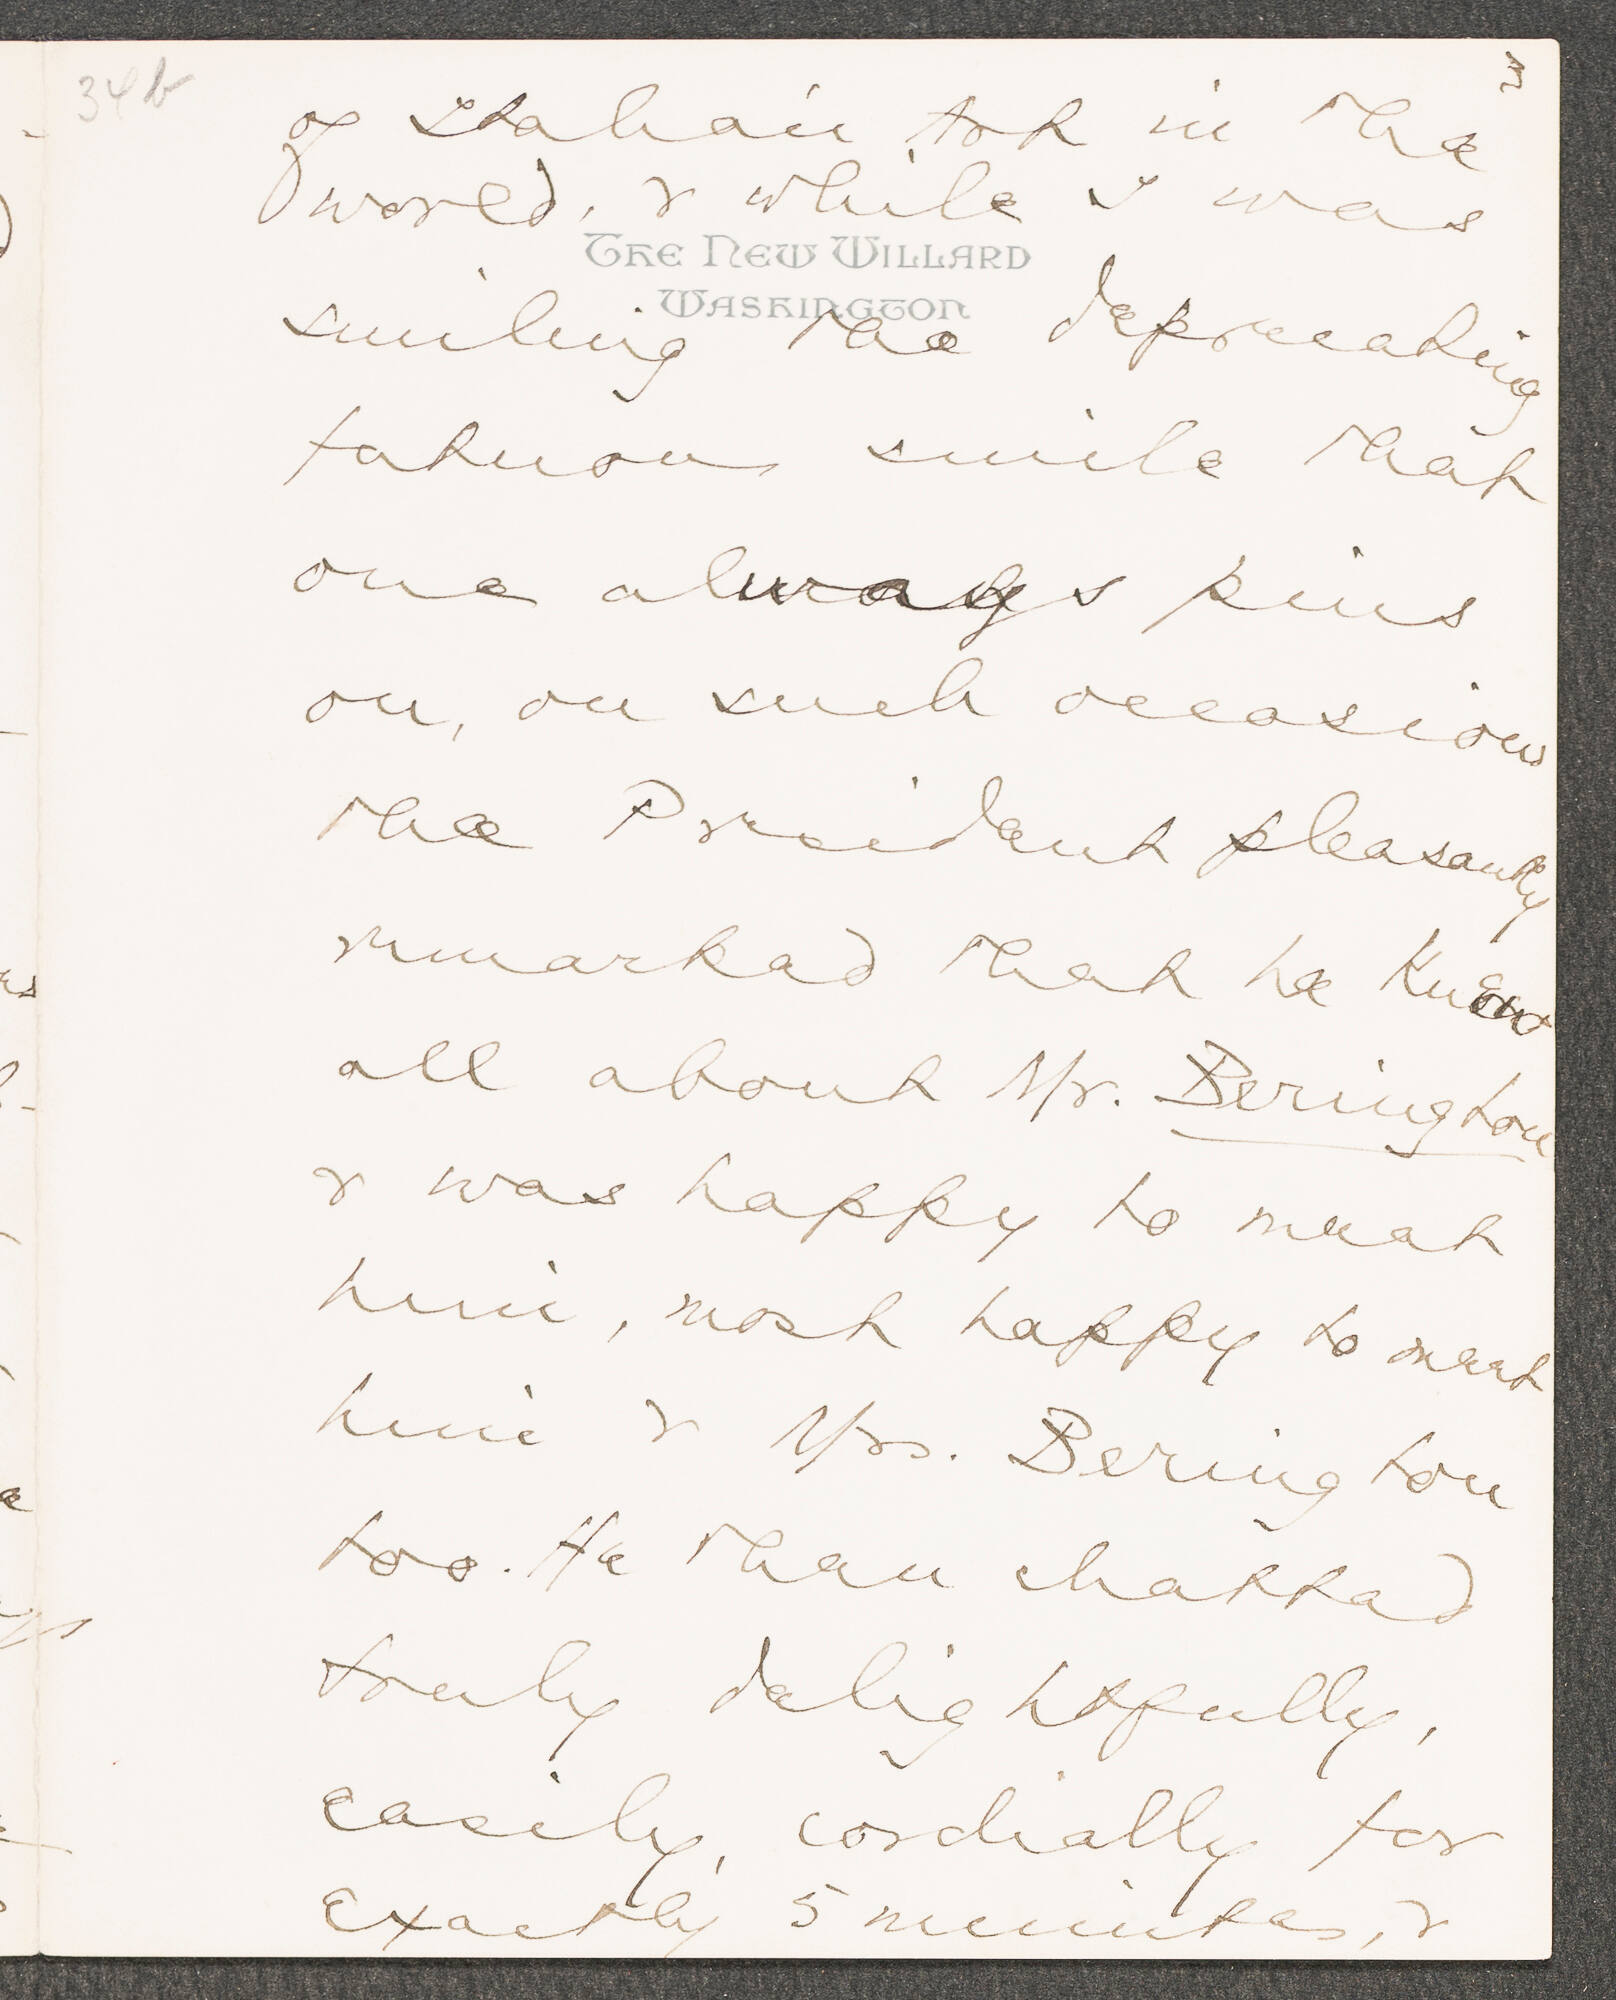 34b
3
of Italian Art in the
world, & while I was
THE NEW WILLARD
WASHINGTON
smiling the deprecating
fatuous smile that
one always pins
on, on such occasions
the President pleasantly
remarked that he knew
all about Mr. Berington
& was happy to meet
him, most happy to meet
him & Mrs. Berington
too. He then chatted
truly delightfully,
easily, cordially for
exactly 5 minutes, &